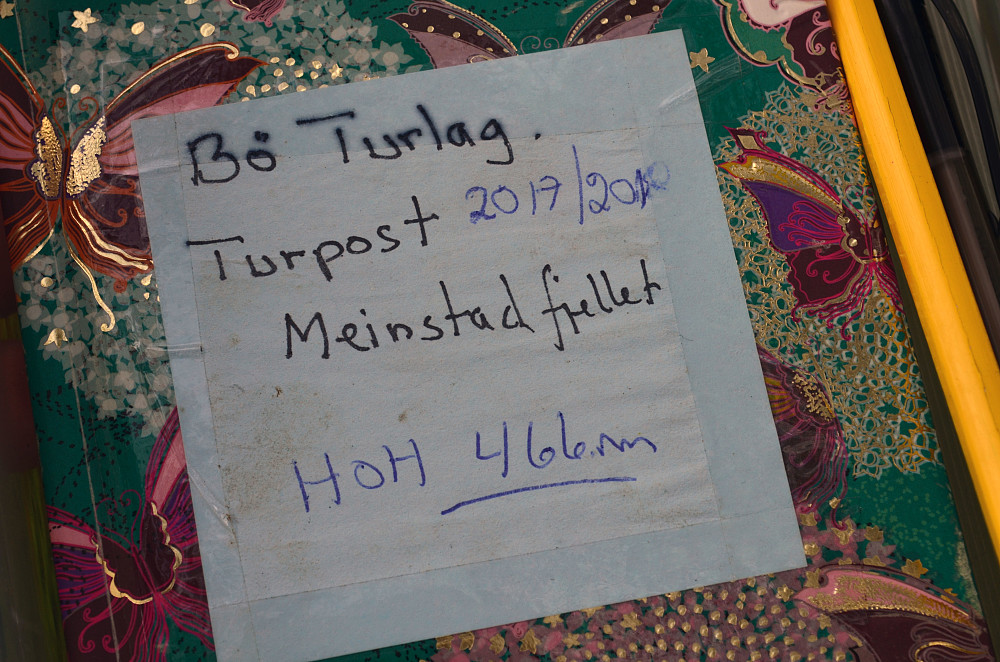 Bö Turlag.
Turpost 2017/20
Meinstadfjellet
HOH 466m